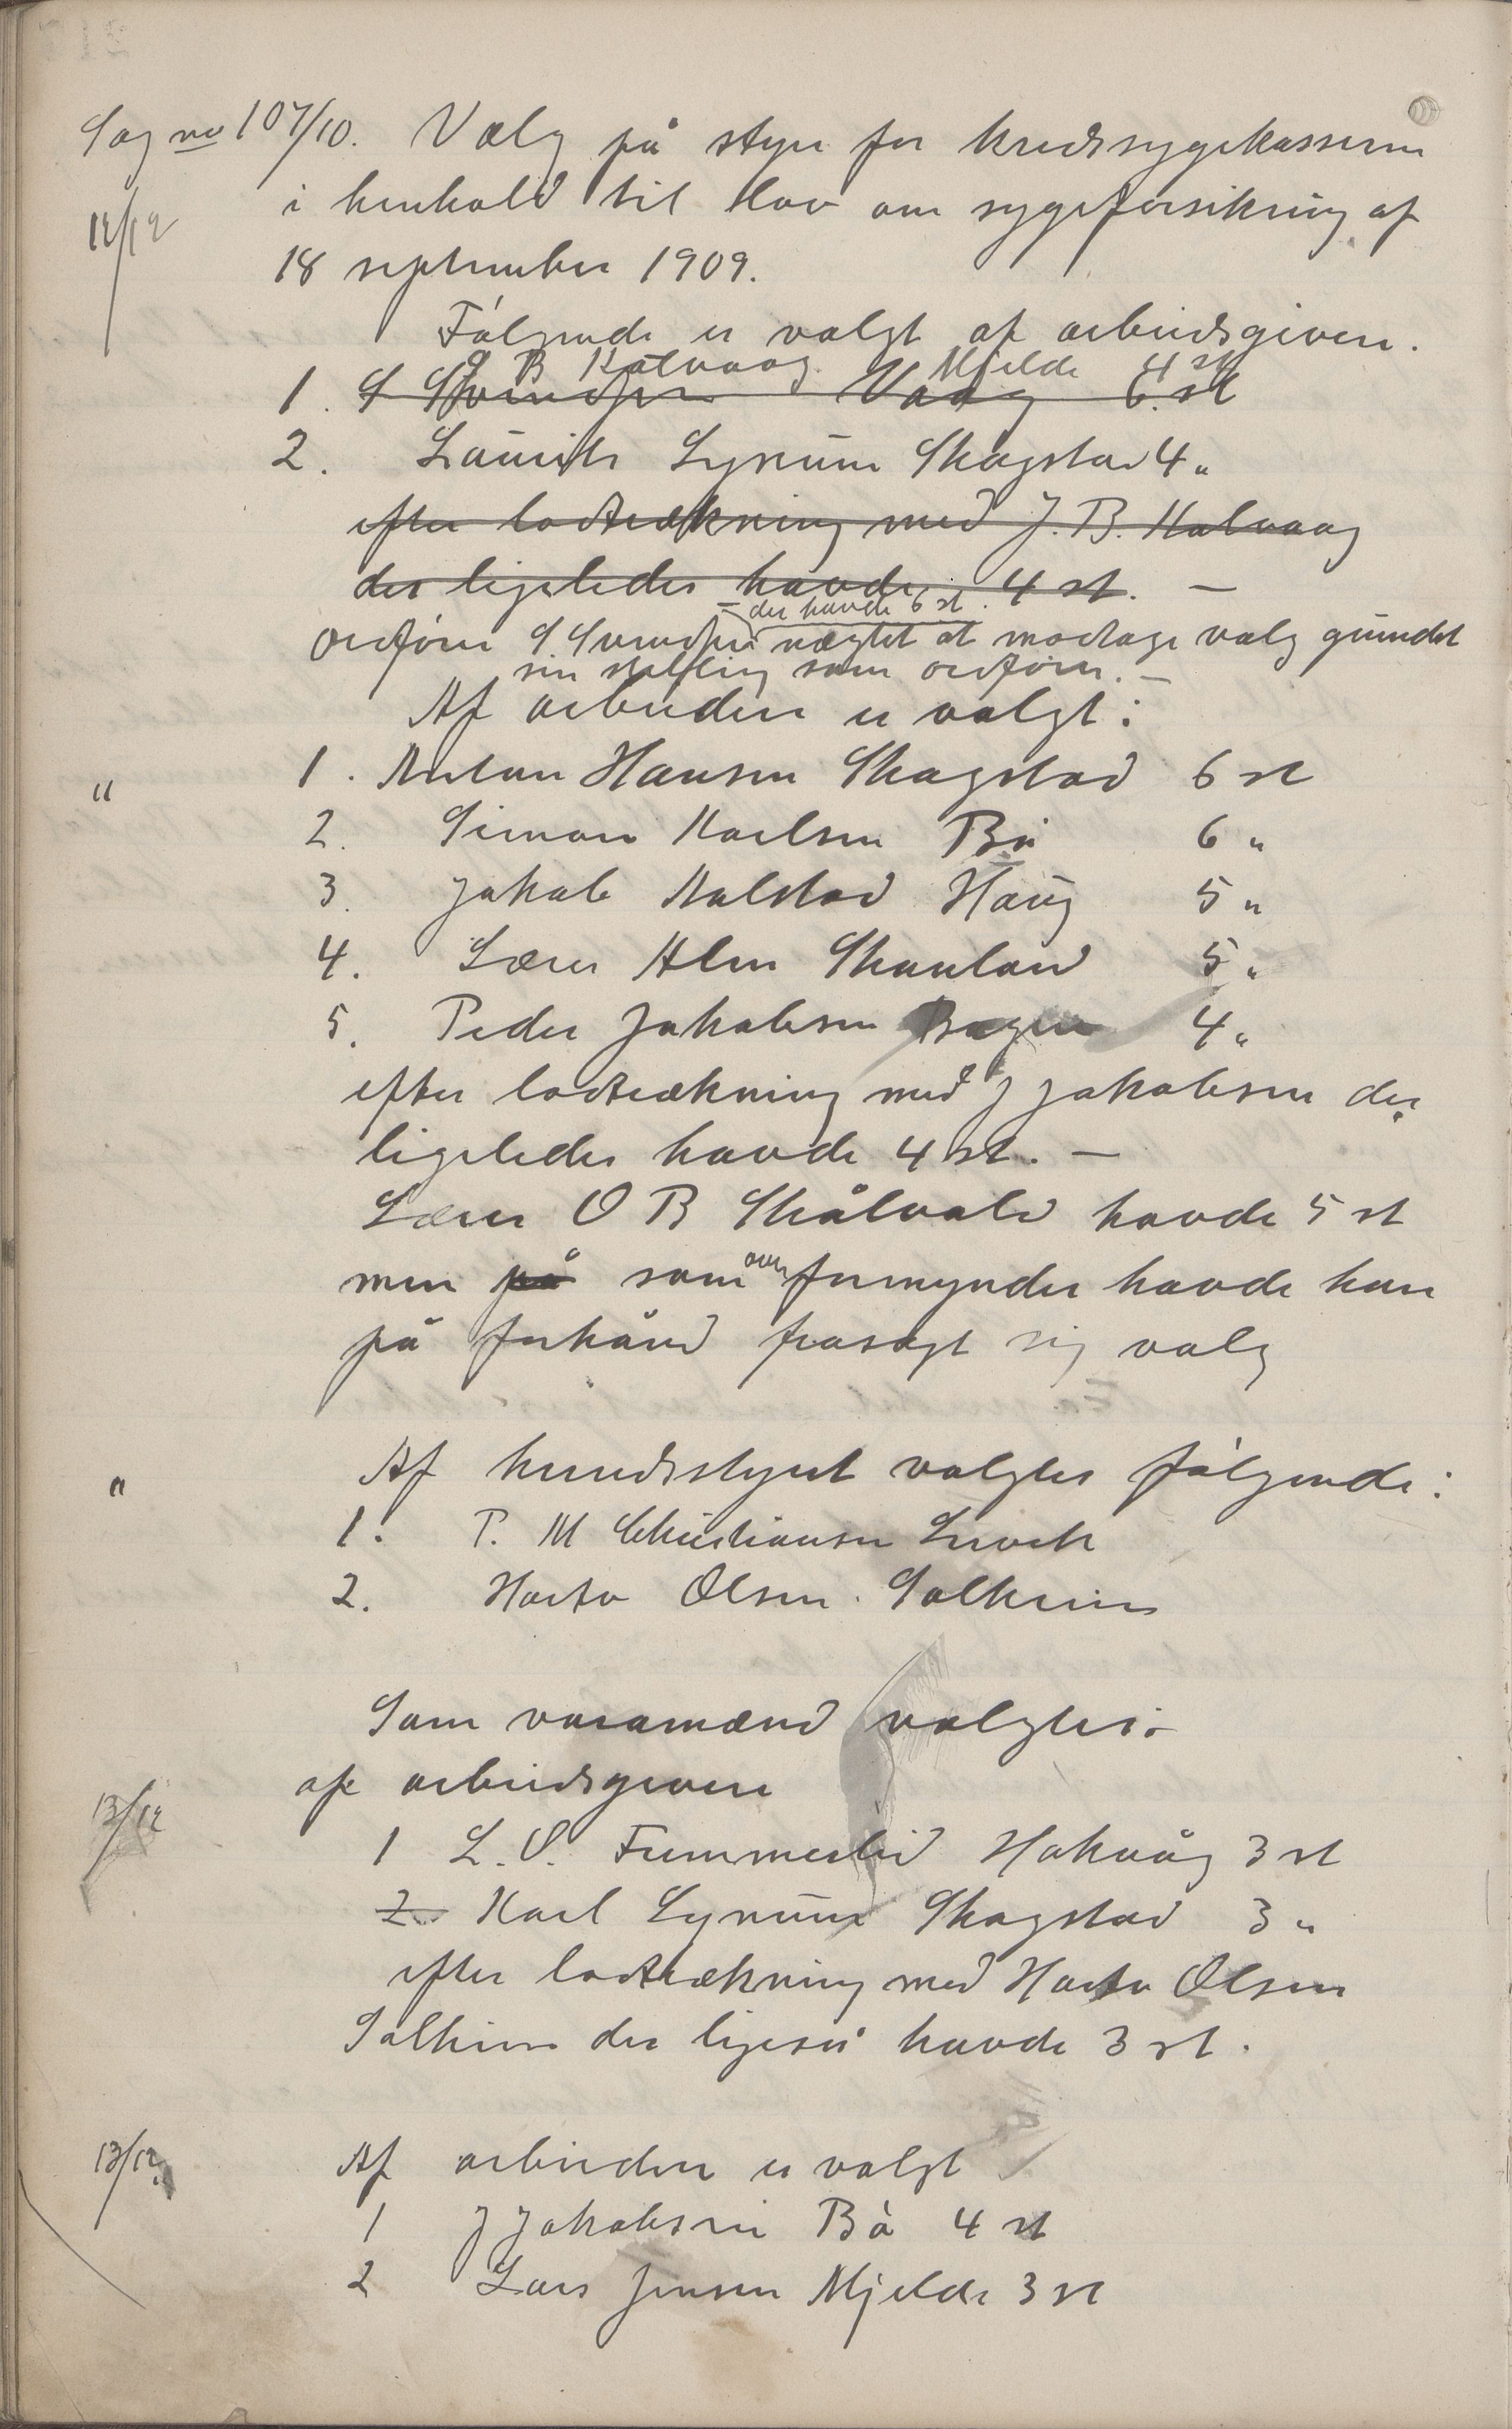 Sag no 107/10. Valg på styre for kredssygekasserne
12/12 i henhold til lov om sygeforsikring af
18 september 1909.
Følgende er valgt af arbeidsgivere.
J B Kalvaag Mjelde 4 st
1. S Svendsen Vaag 6 st
2. Lauritz Lynum Skagstad 4 "
efter lodtrækning med J. B. Kalvaag
der ligeledes havde 4 st. –
– der havde 6 st.
ordfører S Svendsen nægtet at modtage valg grundet
sin stilling som ordfører. –
Af arbeidere er valgt:
" 1. Anton Hansen Skagstad 6 st
2. Simon Karlsen Bø 6 "
3. Jakob Kalstad Haug 5 "
4. Lærer Alm Skanland 5 "
5. Peder Jakobsen 4 "
efter lodtrækning med J Jakobsen der
ligeledes havde 4 st. –
Lærer O B Skålvold havde 5 st
men på som over formynder havde han
på forhånd frasagt sig valg
" Af herredsstyret valgtes følgende:
1. P. M Christiansen Livoch
2. Hartv Olsen Solheim
Som varamænd valgtes:
af arbeidsgivere
13/12
1 L. O. Fummerlid Hakvåg 3 st
2. Karl Lynum Skagstad 3 "
efter lodtrækning med Hartv Olsen
Solheim der ligeså havde 3 st.
13/12. Af arbeidere er valgt
1 J Jakobsen Bø 4 st
2 Lars Jensen Mjelde 3 st